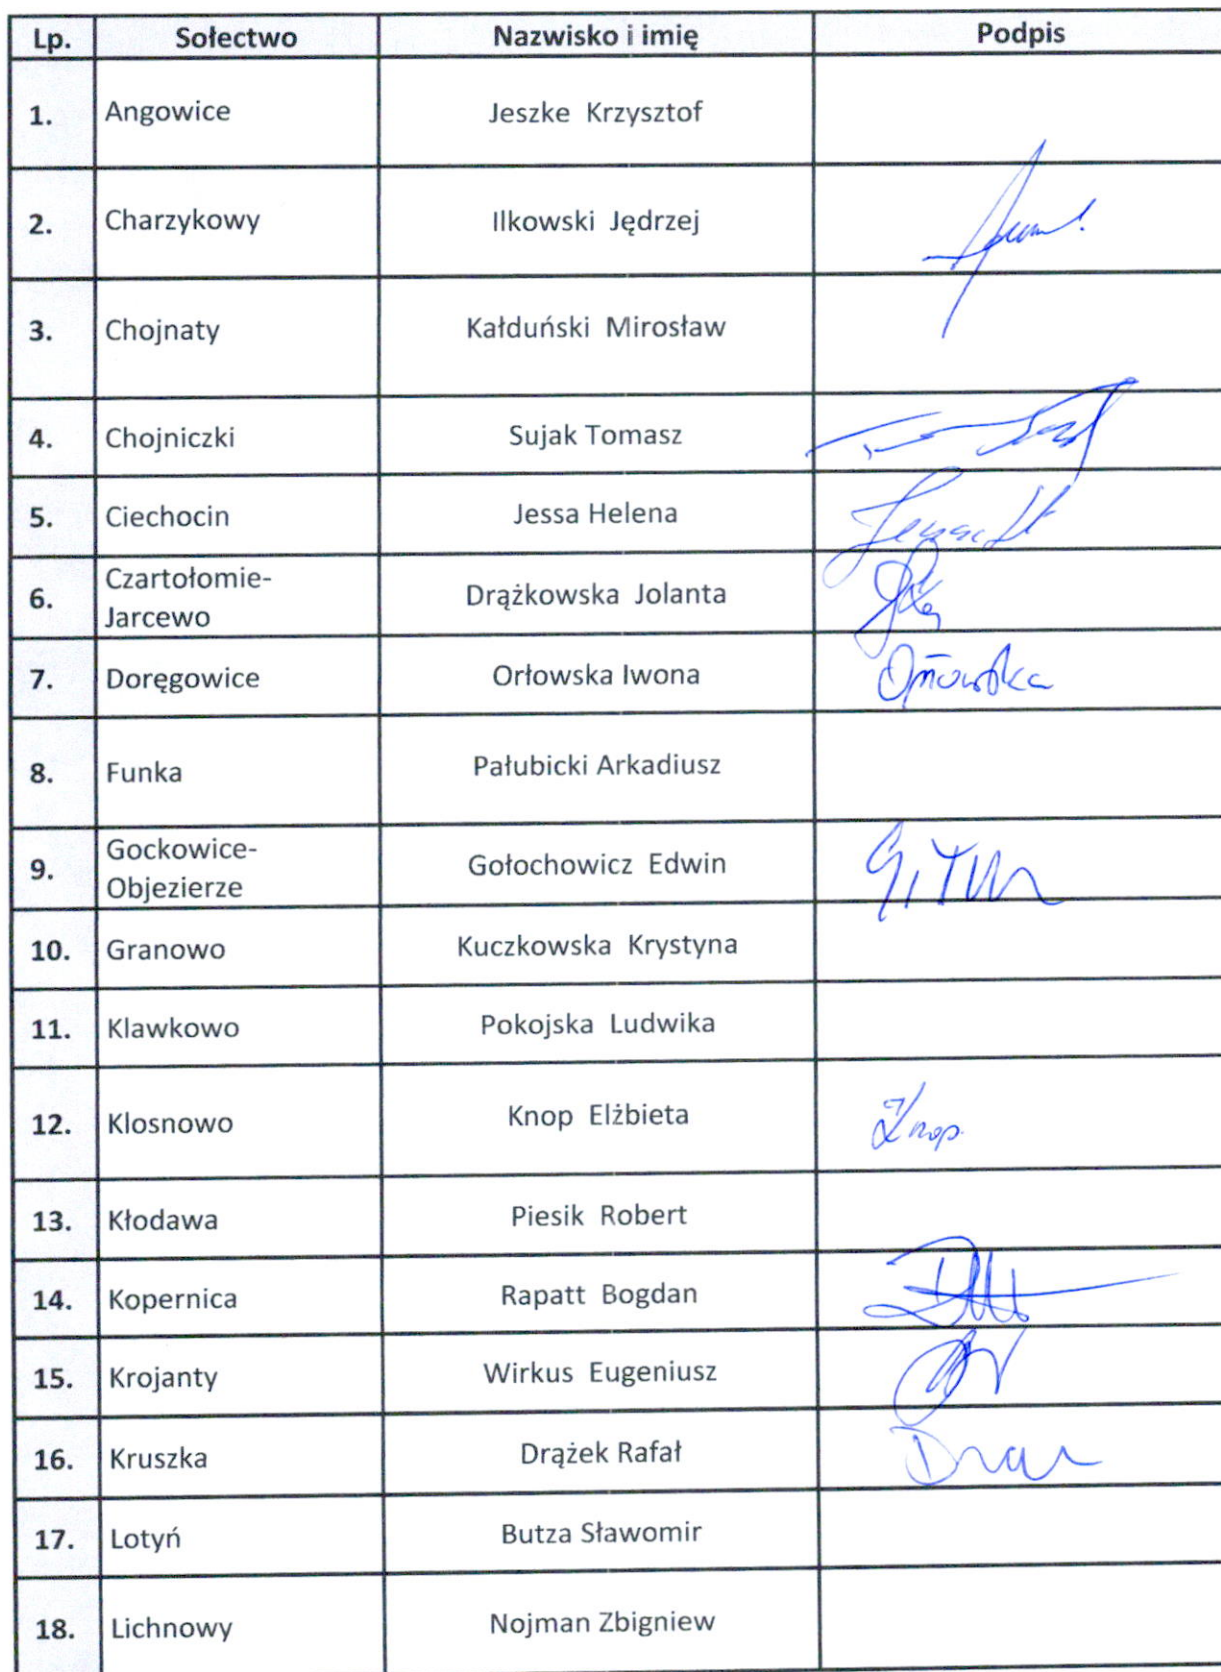 Lp. Sołectwo Nazwisko i imię Podpis
1. Angowice Jeszke Krzysztof
2. Charzykowy Ilkowski Jędrzej
3. Chojnaty Kałduński Mirosław
4. Chojniczki Sujak Tomasz
5. Ciechocin Jessa Helena
6. Czartołomie-
Jarcewo Drążkowska Jolanta
7. Doręgowice Orłowska Iwona Orłowska
8. Funka Pałubicki Arkadiusz
9. Gockowice-
Objezierze Gołochowicz Edwin
10. Granowo Kuczkowska Krystyna
11. Klawkowo Pokojska Ludwika
12. Klosnowo Knop Elżbieta Knop
13. Kłodawa Piesik Robert
14. Kopernica Rapatt Bogdan
15. Krojanty Wirkus Eugeniusz
16. Kruszka Drążek Rafał
17. Lotyń Butza Sławomir
18. Lichnowy Nojman Zbigniew